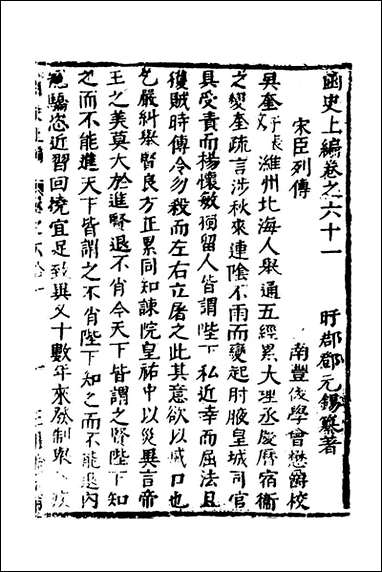 函史上編卷之六十一
盱郡鄧元錫纂著
南豐後學曾懋爵校
宋臣列傳
吳奎字長文濰州北海人舉通五經累大理丞慶曆宿衛
之變奎疏言涉秋來連陰不雨而變起肘腋皇城司官
具受責而楊懷敏獨留人皆謂陛下私近幸而屈法且
獲賊時傳令勿殺而左右立屠之此其意欲以滅口也
乞嚴糾舉賢良方正累同知諫院皇祐中以災異言帝
王之美莫大於進賢退不肖今天下皆謂之賢陛下知
之而不能進天下皆謂之不肖陛下知之而不能退內
寵驕恣近習回撓宜足致異又十數年來壓制